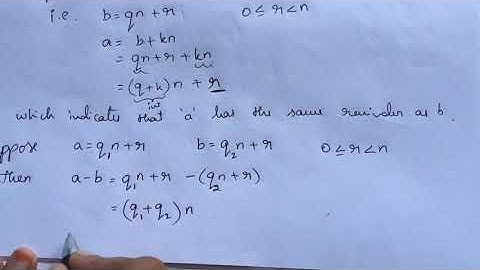 i.e. b = qn + r 0 ≤ r < n
a = b + kn
= qn + r + kn
= (q + k) n + r
int
which indicates that 'a' has the same remainder as b.
ppose a = q₁n + r b = q₂n + r 0 ≤ r < n
then a - b = q₁n + r - (q₂n + r)
= (q₁ + q₂) n